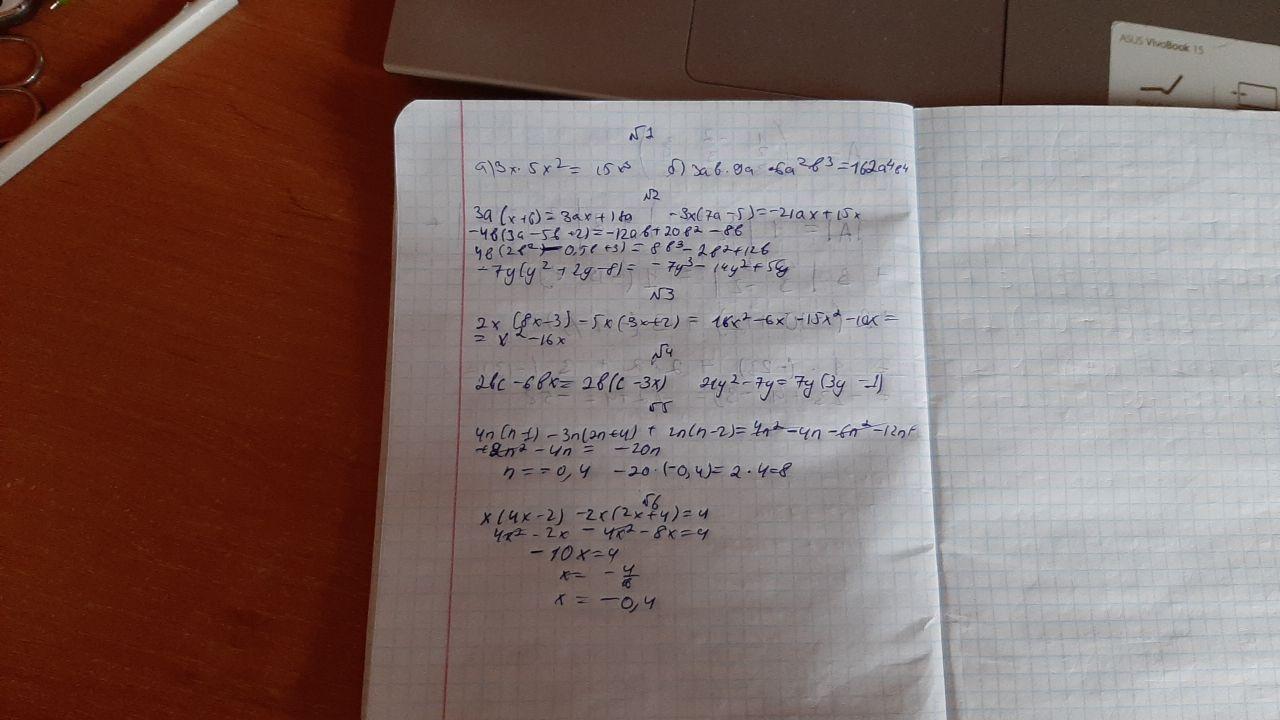 ASUS VivoBook 15
№1
а) 3x · 5x² = 15x³ б) 3ab · 9a · 6a²b³ = 162a⁴b⁴
№2
3a(x+6) = 3ax + 18a -3x(7a-5) = -21ax + 15x
-4b(3a-5b+2) = -12ab + 20b² - 8b
4b(2b² - 0,5b + 3) = 8b³ - 2b² + 12b
-7y(y² + 2y - 8) = -7y³ - 14y² + 56y
№3
2x(8x-3) - 5x(3x+2) = 16x² - 6x - 15x² - 10x =
= x² - 16x
№4
2bc - 6bx = 2b(c - 3x) 21y² - 7y = 7y(3y - 1)
№5
4n(n-1) - 3n(2n+4) + 2n(n-2) = 4n² - 4n - 6n² - 12n +
+ 2n² - 4n = -20n
n = -0,4 -20 · (-0,4) = 2 · 4 = 8
№6
x(4x-2) - 2x(2x+4) = 4
4x² - 2x - 4x² - 8x = 4
-10x = 4
x = -4/10
x = -0,4